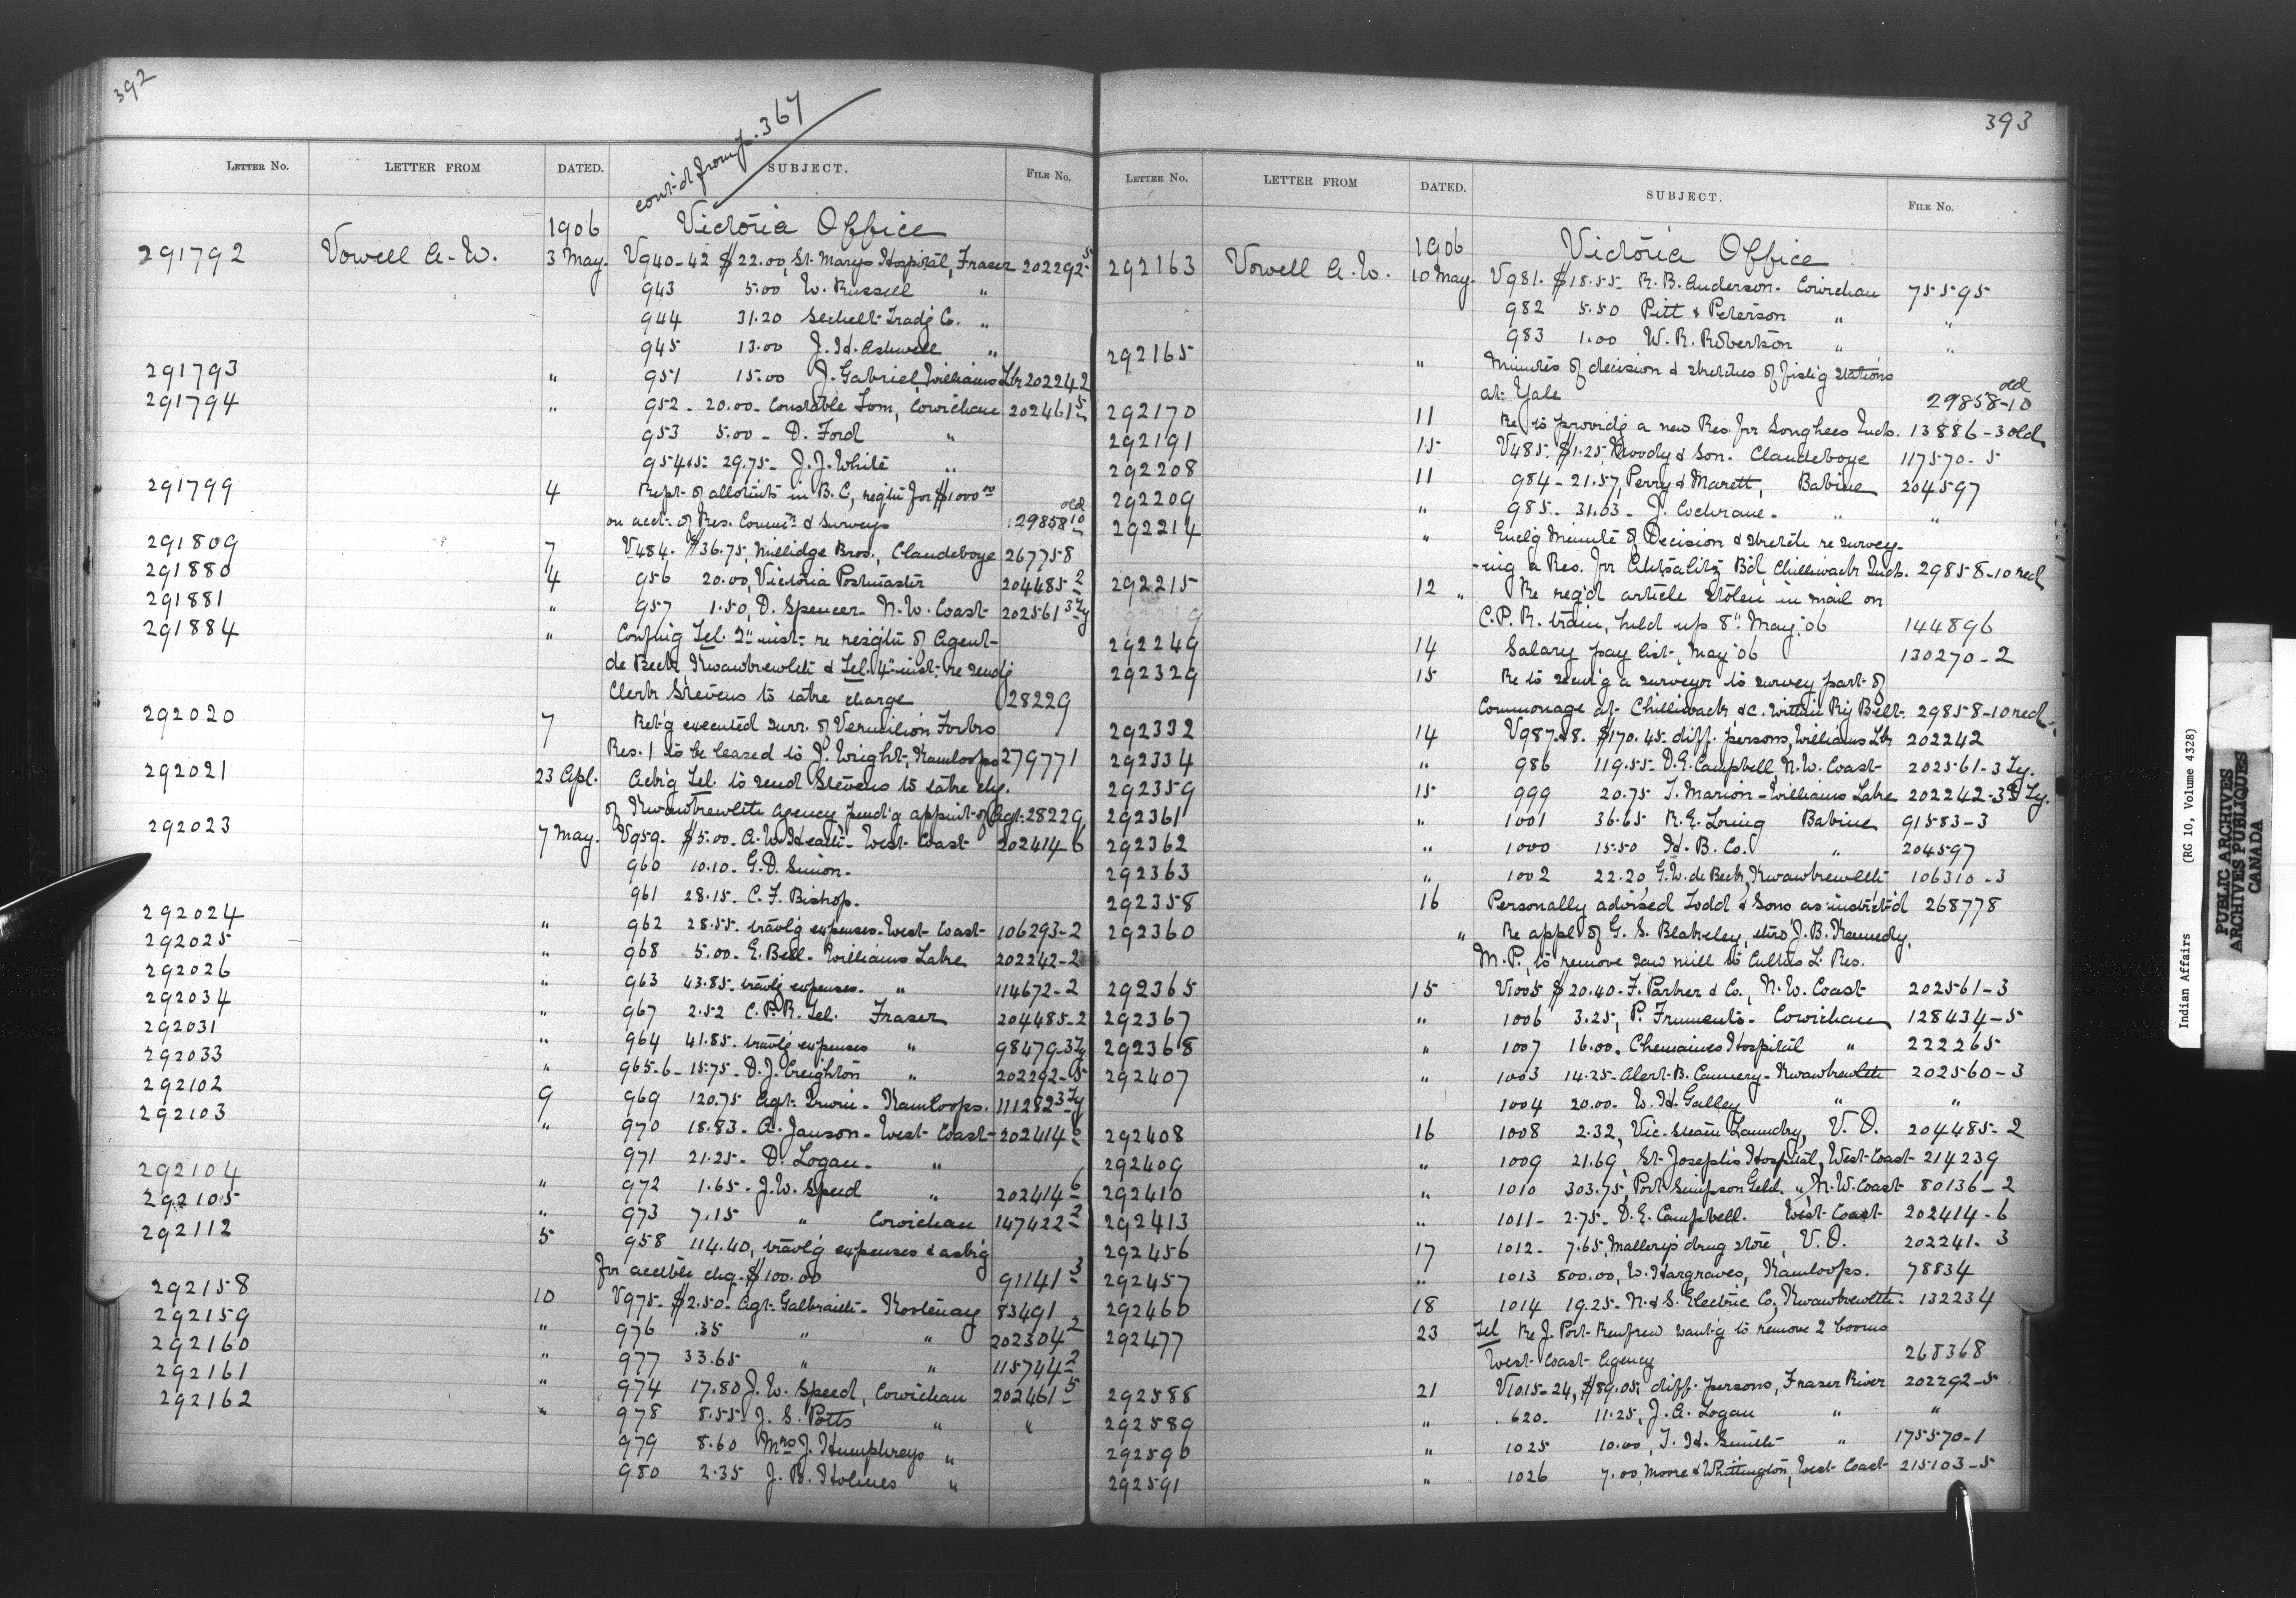 392
cont'd from p. 367
LETTER No. LETTER FROM DATED. SUBJECT. FILE No.
1906 Victoria Office
291792 Vowell A. W. 3 May. V940-42 $22.00, St. Marys Hospital, Fraser 202292-5
943 5.00 W. Russell "
944 31.20 Sechelt Tradg Co. "
945 13.00 J. H. Ashwell "
291793 " 951 15.00 J. Gabriel, Williams Lk 202242
291794 " 952 - 20.00 - Constable Tom, Cowichan 202461-5
953 5.00 - D. Ford "
954&5 - 29.75 - J. J. White "
291799 4 Rept. of allotmts in B.C., reqtn for $1000.00
on acct. of Res. Commr. & Surveys 29858-10 old
291809 7 V484. $36.75, Millidge Bros., Clandeboye 267758
291880 4 956 20.00, Victoria Postmaster 204485-2
291881 " 957 1.50, D. Spencer - N. W. Coast 202561-3 Ty
291884 " Confmg Tel. 2" inst. re resigtn of Agent
de Beck, Kwawkewlth & Tel. 4" inst. re sendg
Clerk Stevens to take charge 28229
292020 7 Ret'g executed surr. of Vermilion Forks
Res. 1 to be leased to J. Wright, Kamloops 279771
292021 23 Apl. Ack'g Tel. to send Stevens to take chg.
of Kwawkewlth Agency pend'g appmt. of Agt. 28229
292023 7 May. V959. $5.00. A. W. Heath - West Coast 202414-6
960 10.10 - G. D. Simon.
961 28.15. C. F. Bishop.
292024 " 962 28.55. travl'g expenses - West Coast 106293-2
292025 " 968 5.00 - E. Bell - Williams Lake 202242-2
292026 " 963 43.85 - travlg expenses. " 114672-2
292034 " 967 2.52 C. P. R. Tel. Fraser 204485-2
292031 " 964 41.85. travlg expenses " 98479-3 Ty
292033 " 965-6 - 15.75 - D. J. Creighton " 202292-5
292102 9 969 120.75 Agt. Irwin - Kamloops. 111282-3 Ty
292103 " 970 18.83 - A. Janson - West Coast 202414-6
971 21.25 - D. Logan - "
292104 " 972 1.65 - J. W. Speed " 202414-6
292105 " 973 7.15 " Cowichan 147422-2
292112 5 958 114.40, travl'g expenses & ask'g
for accble chq. $100.00 91141-3
292158 10 V975 - $2.50 - Agt. Galbraith - Kootenay 83491
292159 " 976 .35 " " 202304-2
292160 " 977 33.65 " " 115744-2
292161 " 974 17.80 J. W. Speed, Cowichan 202461-5
292162 " 978 8.55 - J. S. Potts " "
979 8.60 Mrs J. Humphreys "
980 2.35 J. B. Holmes "
393
LETTER No. LETTER FROM DATED. SUBJECT. FILE No.
1906 Victoria Office
292163 Vowell A. W. 10 May. V981. $18.55 - R. B. Anderson - Cowichan 75595
982 5.50 Pitt & Peterson " "
983 1.00 W. R. Robertson " "
292165 " Minutes of decision & sketches of fishg stations
at Yale 29858-10 old
292170 11 Re to providg a new Res. for Songhees Inds. 13886-3 old
292191 15 V485. $1.25, Moody & Son. Clandeboye 117570-5
292208 11 984 - 21.57, Perry & Marett, Babine 204597
292209 " 985 - 31.03 - J. Cochrane - " "
292214 " Enclg Minute of Decision & sketch re survey-
-ing a Res. for Aitchelitz Bd. Chilliwack Inds. 29858-10 red
292215 12 " Re reg'd article stolen in mail on
C. P. R. train, held up 8" May '06 144896
292249 14 Salary pay list, May '06 130270-2
292329 15 Re to send'g a surveyor to survey part of
Commonage at Chilliwack, &c. within Ry Belt. 29858-10 red
292332 14 V987-&8. $170.45 - diff. persons, Williams Lk 202242
292334 " 986 119.55 - D. E. Campbell, N. W. Coast 202561-3 Ty.
292359 15 999 20.75 T. Marion - Williams Lake 202242-3 Ty.
292361 " 1001 36.65 R. E. Loring Babine 91583-3
292362 " 1000 15.50 H. B. Co. " 204597
292363 " 1002 22.20 G. W. de Beck, Kwawkewlth 106310-3
292358 16 Personally advised Todd & Sons as instrct'd 268778
292360 " Re appl. of G. S. Blakeley, thro J. B. Kennedy,
M. P., to remove saw mill to Cultus L. Res.
292365 15 V1005 $20.40 - F. Parker & Co., N. W. Coast 202561-3
292367 " 1006 3.25, P. Frumento - Cowichan 128434-5
292368 " 1007 16.00. Chemainus Hospital " 222265
292407 " 1003 14.25 - Alert B. Cannery - Kwawkewlth 202560-3
1004 20.00 - W. H. Galley " "
292408 16 1008 2.32, Vic. Steam Laundry, V. O. 204485-2
292409 " 1009 21.69, St. Joseph's Hospital, West Coast 214239
292410 " 1010 303.75, Port Simpson Genl. " N. W. Coast 80136-2
292413 " 1011 - 2.75 - D. E. Campbell. West Coast 202414-6
292456 17 1012 - 7.65, Mallery's drug store, V. O. 202241-3
292457 " 1013 800.00, W. Hargraves, Kamloops. 78834
292460 18 1014 19.25 - N. & S. Electric Co., Kwawkewlth 132234
292477 23 Tel Re J. Port Renfrew want'g to remove 2 booms
West Coast Agency 268368
292588 21 V1015-24, $89.05, diff. persons, Fraser River 202292-5
292589 " 620 - 11.25, J. A. Logan " "
292590 " 1025 10.00, T. H. Smith " 175570-1
292591 " 1026 7.00, Moore & Whittington, West Coast 215103-5
Indian Affairs (RG 10, Volume 4328)
PUBLIC ARCHIVES
ARCHIVES PUBLIQUES
CANADA